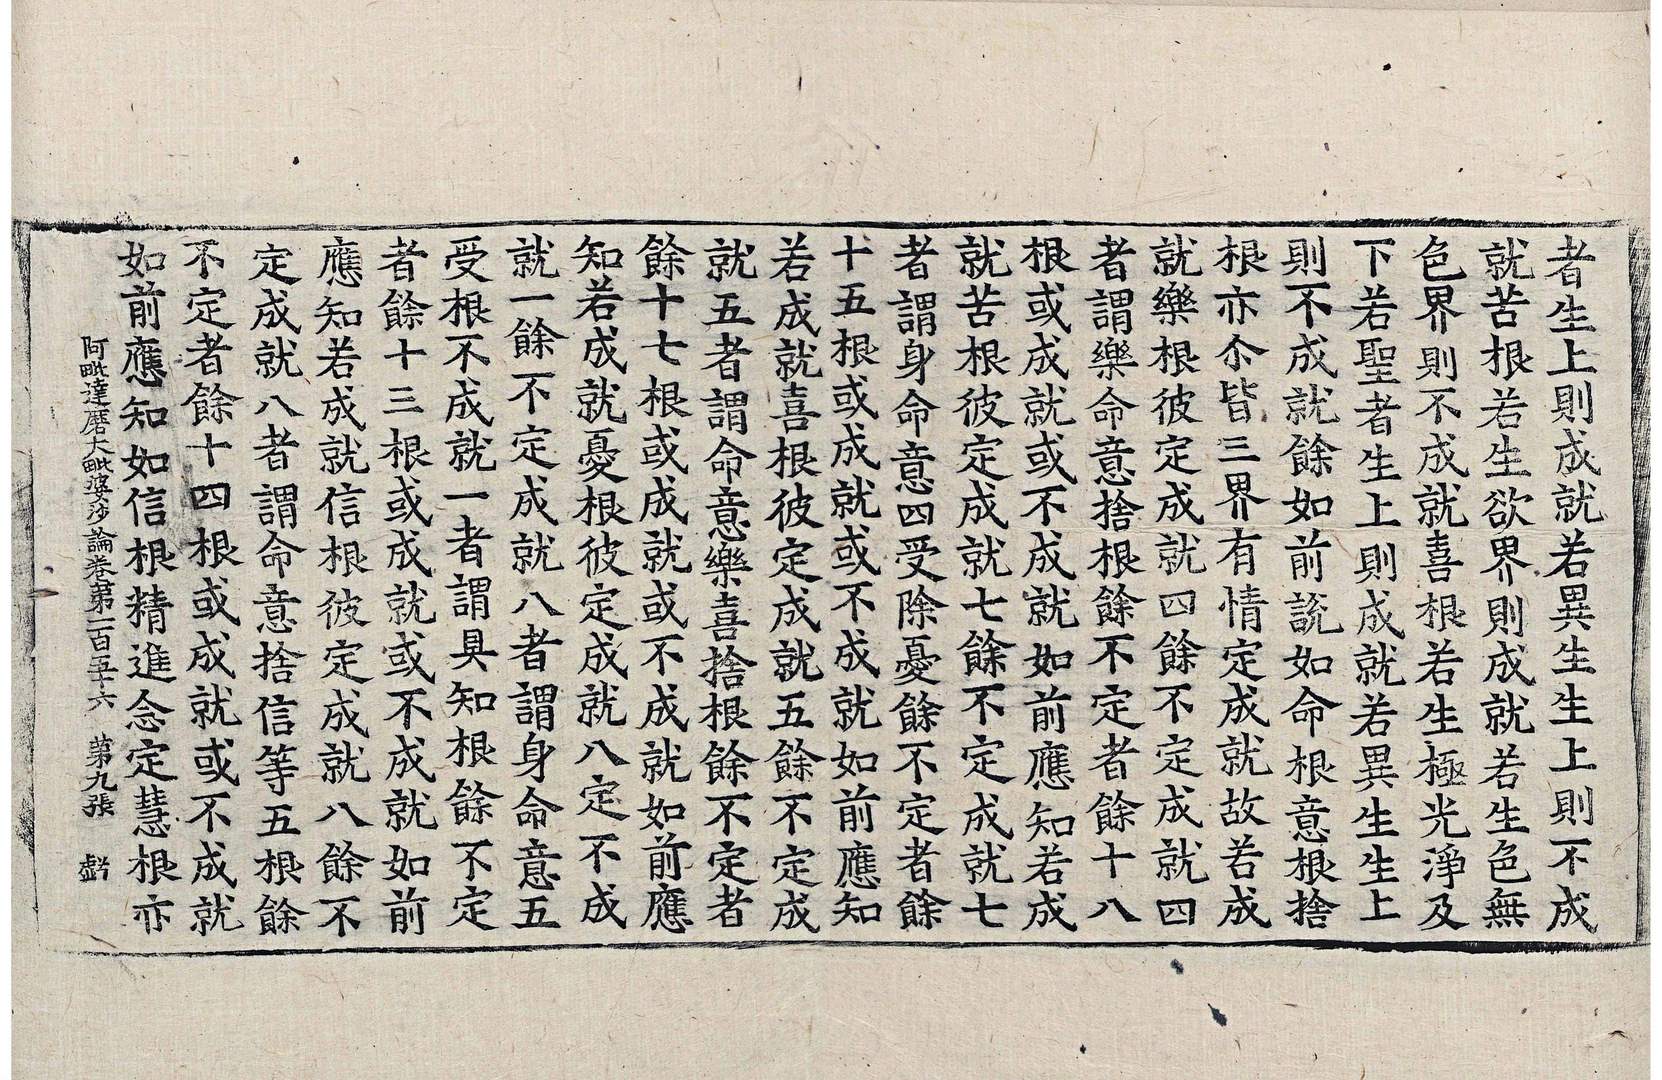 者生上則成就若異生生上則不成
就苦根若生欲界則成就若生色無
色界則不成就喜根若生極光淨及
下若聖者生上則成就若異生生上
則不成就餘如前說如命根意根捨
根亦尒皆三界有情定成就故若成
就樂根彼定成就四餘不定成就四
者謂樂命意捨根餘不定者餘十八
根或成就或不成就如前應知若成
就苦根彼定成就七餘不定成就七
者謂身命意四受除憂餘不定者餘
十五根或成就或不成就如前應知
若成就喜根彼定成就五餘不定成
就五者謂命意樂喜捨根餘不定者
餘十七根或成就或不成就如前應
知若成就憂根彼定成就八定不成
就一餘不定成就八者謂身命意五
受根不成就一者謂具知根餘不定
者餘十三根或成就或不成就如前
應知若成就信根彼定成就八餘不
定成就八者謂命意捨信等五根餘
不定者餘十四根或成就或不成就
如前應知如信根精進念定慧根亦
阿毗達磨大毗婆沙論卷第一百五十六 第九張